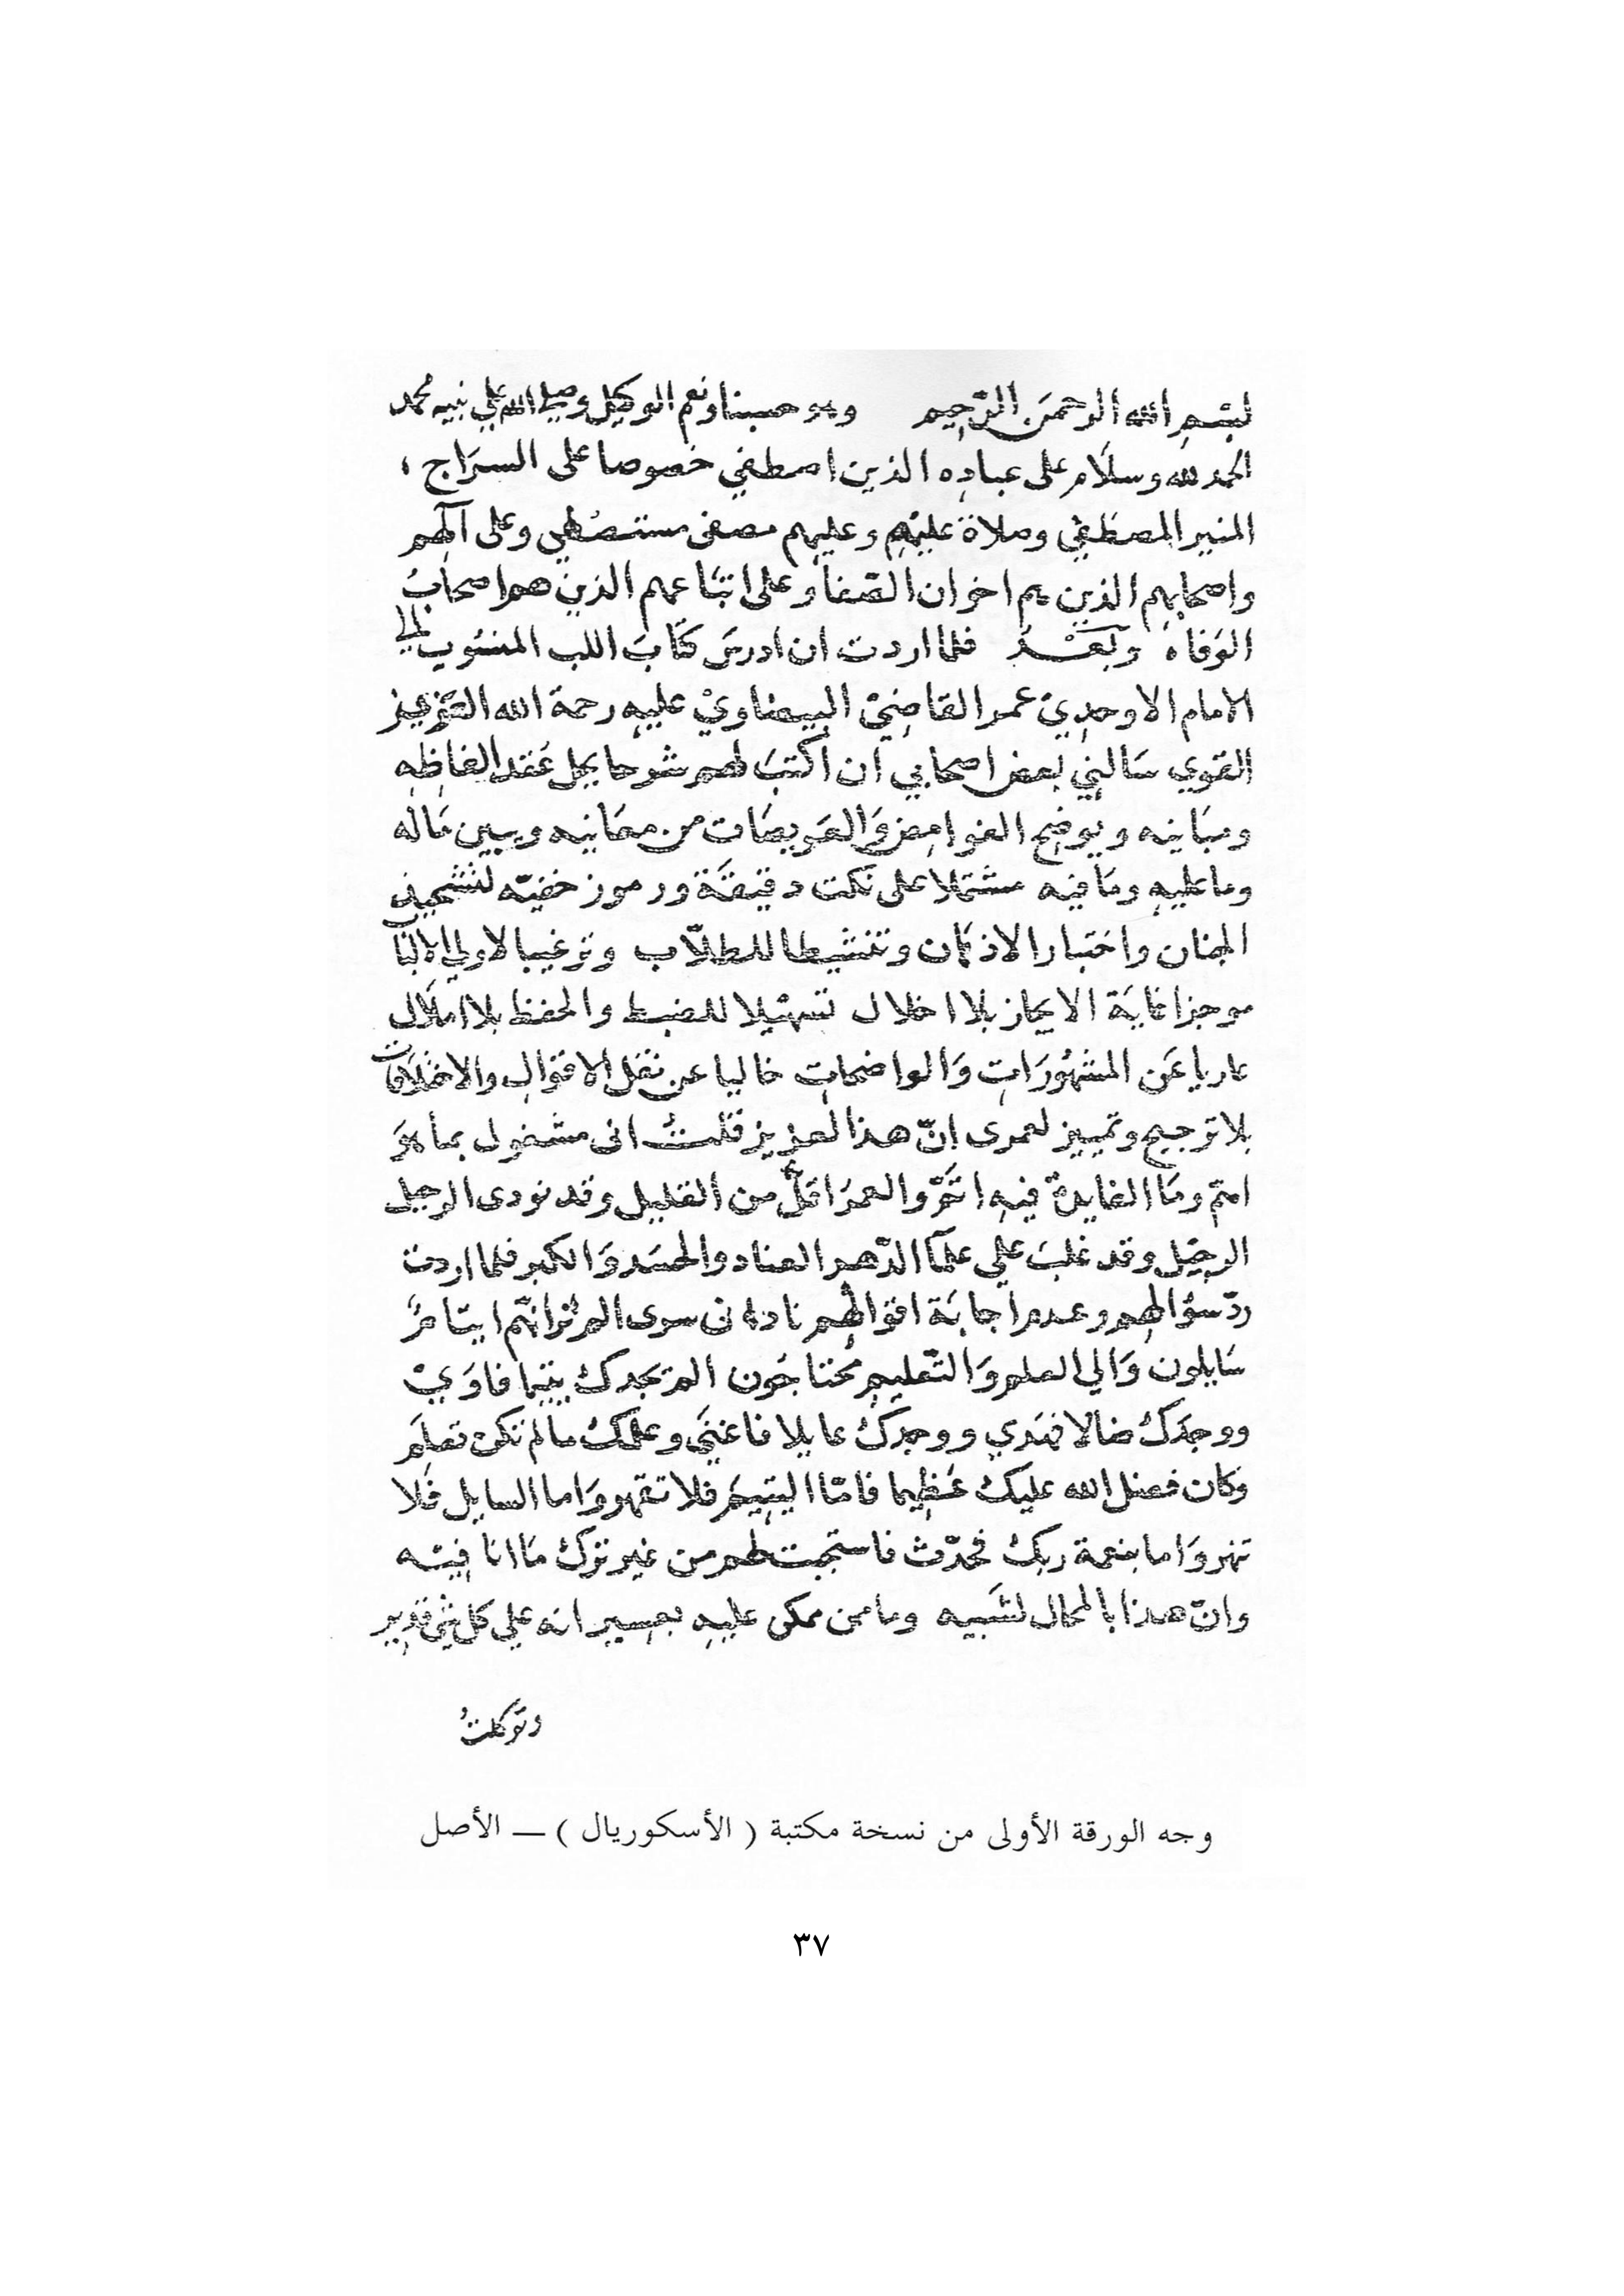 بسم الله الرحمن الرحيم وهو حسبنا ونعم الوكيل وصلى الله على نبيه محمد
الحمد لله وسلام على عباده الذين اصطفي خصوصا على السراج
المنير المصطفي وصلاة عليه وعليهم مصفى مستصطفي وعلى آلهم
واصحابهم الذين هم اخوان الصفا وعلى اتباعهم الذين هم اصحاب
الوفاه وبعد فلما اردت ان ادرس كتاب اللب المنسوب الى
الامام الاوحدي عمر القاضي البيضاوي عليه رحمة الله العزيز
القوي سالني بعض اصحابي ان اكتب لهم شرحا يحل عقد الفاظه
ومبانيه ويوضح الغوامض والعويصات من معانيه ويبين ماله
وما عليه وما فيه مشتملا على نكت دقيقة ورموز خفيه لتشحيذ
الجنان واختبار الاذهان وتنشيطا للطلاب وترغيبا لاولي الالباب
موجزا غاية الايجاز بلا اخلال تسهيلا للضبط والحفظ بلا املال
عاريا عن المشهورات والواضحات خاليا عن نقل الاقوال والاختلافات
بلا ترجيح وتمييز لعمرى ان هذا لعزيز فقلت انى مشغول بما هو
اهم وما الفايدة فيه اتم والعمر اقل من القليل وقد نودى الرحيل
الرحيل وقد غلب على علماء الدهر العناد والحسد والكبر فلما اردت
رد سؤالهم وعدم اجابة اقوالهم نادانى سرى الم تر انهم ايتام
سايلون والي العلم والتعليم محتاجون الم يجدك يتيما فاوي
ووجدك ضالا فهدي ووجدك عايلا فاغني وعلمك ما لم تكن تعلم
وكان فضل الله عليك عظيما فاما اليتيم فلا تقهر واما السايل فلا
تنهر واما بنعمة ربك فحدث فاستجبت لهم من غير ترك ما انا فيه
وان هذا بالمحال لشبيه وما من ممكن عليه بعسير انه على كل شئ قدير
وتوكلت
وجه الورقة الأولى من نسخة مكتبة ( الأسكوريال ) — الأصل
٣٧